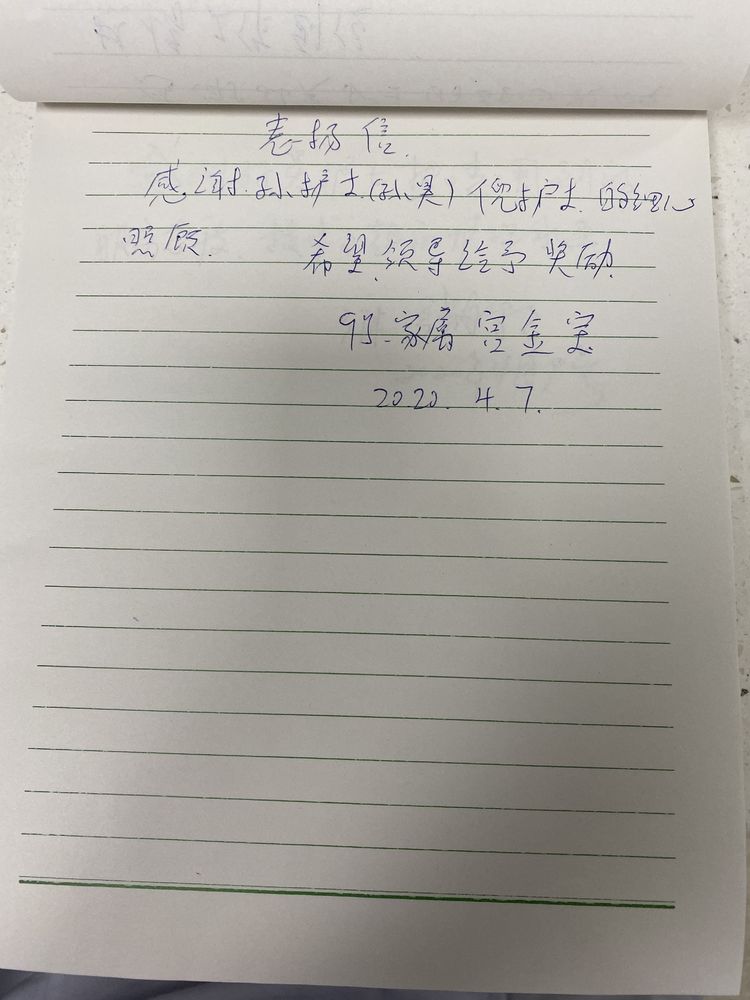 表扬信.
感谢.孙护士(孙昊)倪护士.的细心
照顾. 希望.领导给予奖励.
95.家属宫金宝
2020.4.7.